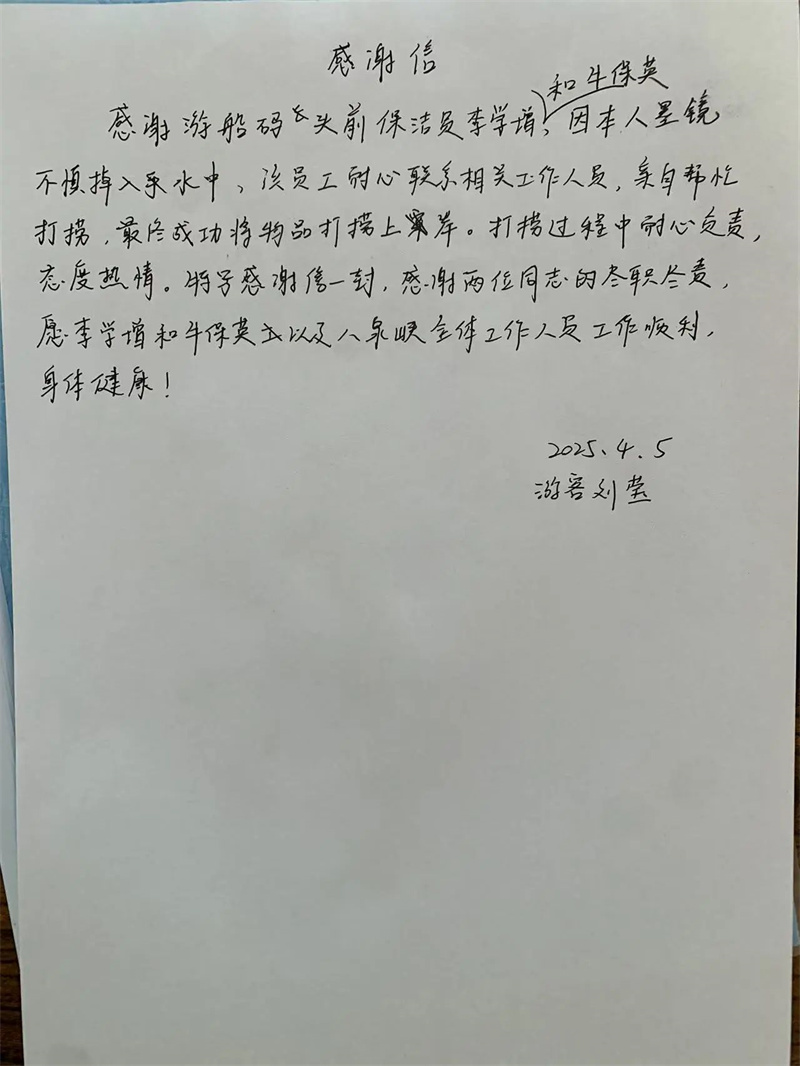 感谢信
感谢游船码头前保洁员李学增和牛保英，因本人墨镜
不慎掉入泉水中，该员工耐心联系相关工作人员，亲自帮忙
打捞，最终成功将物品打捞上岸。打捞过程中耐心负责，
态度热情。特写感谢信一封，感谢两位同志的尽职尽责，
愿李学增和牛保英以及八泉峡全体工作人员工作顺利，
身体健康！
2025.4.5
游客刘莹